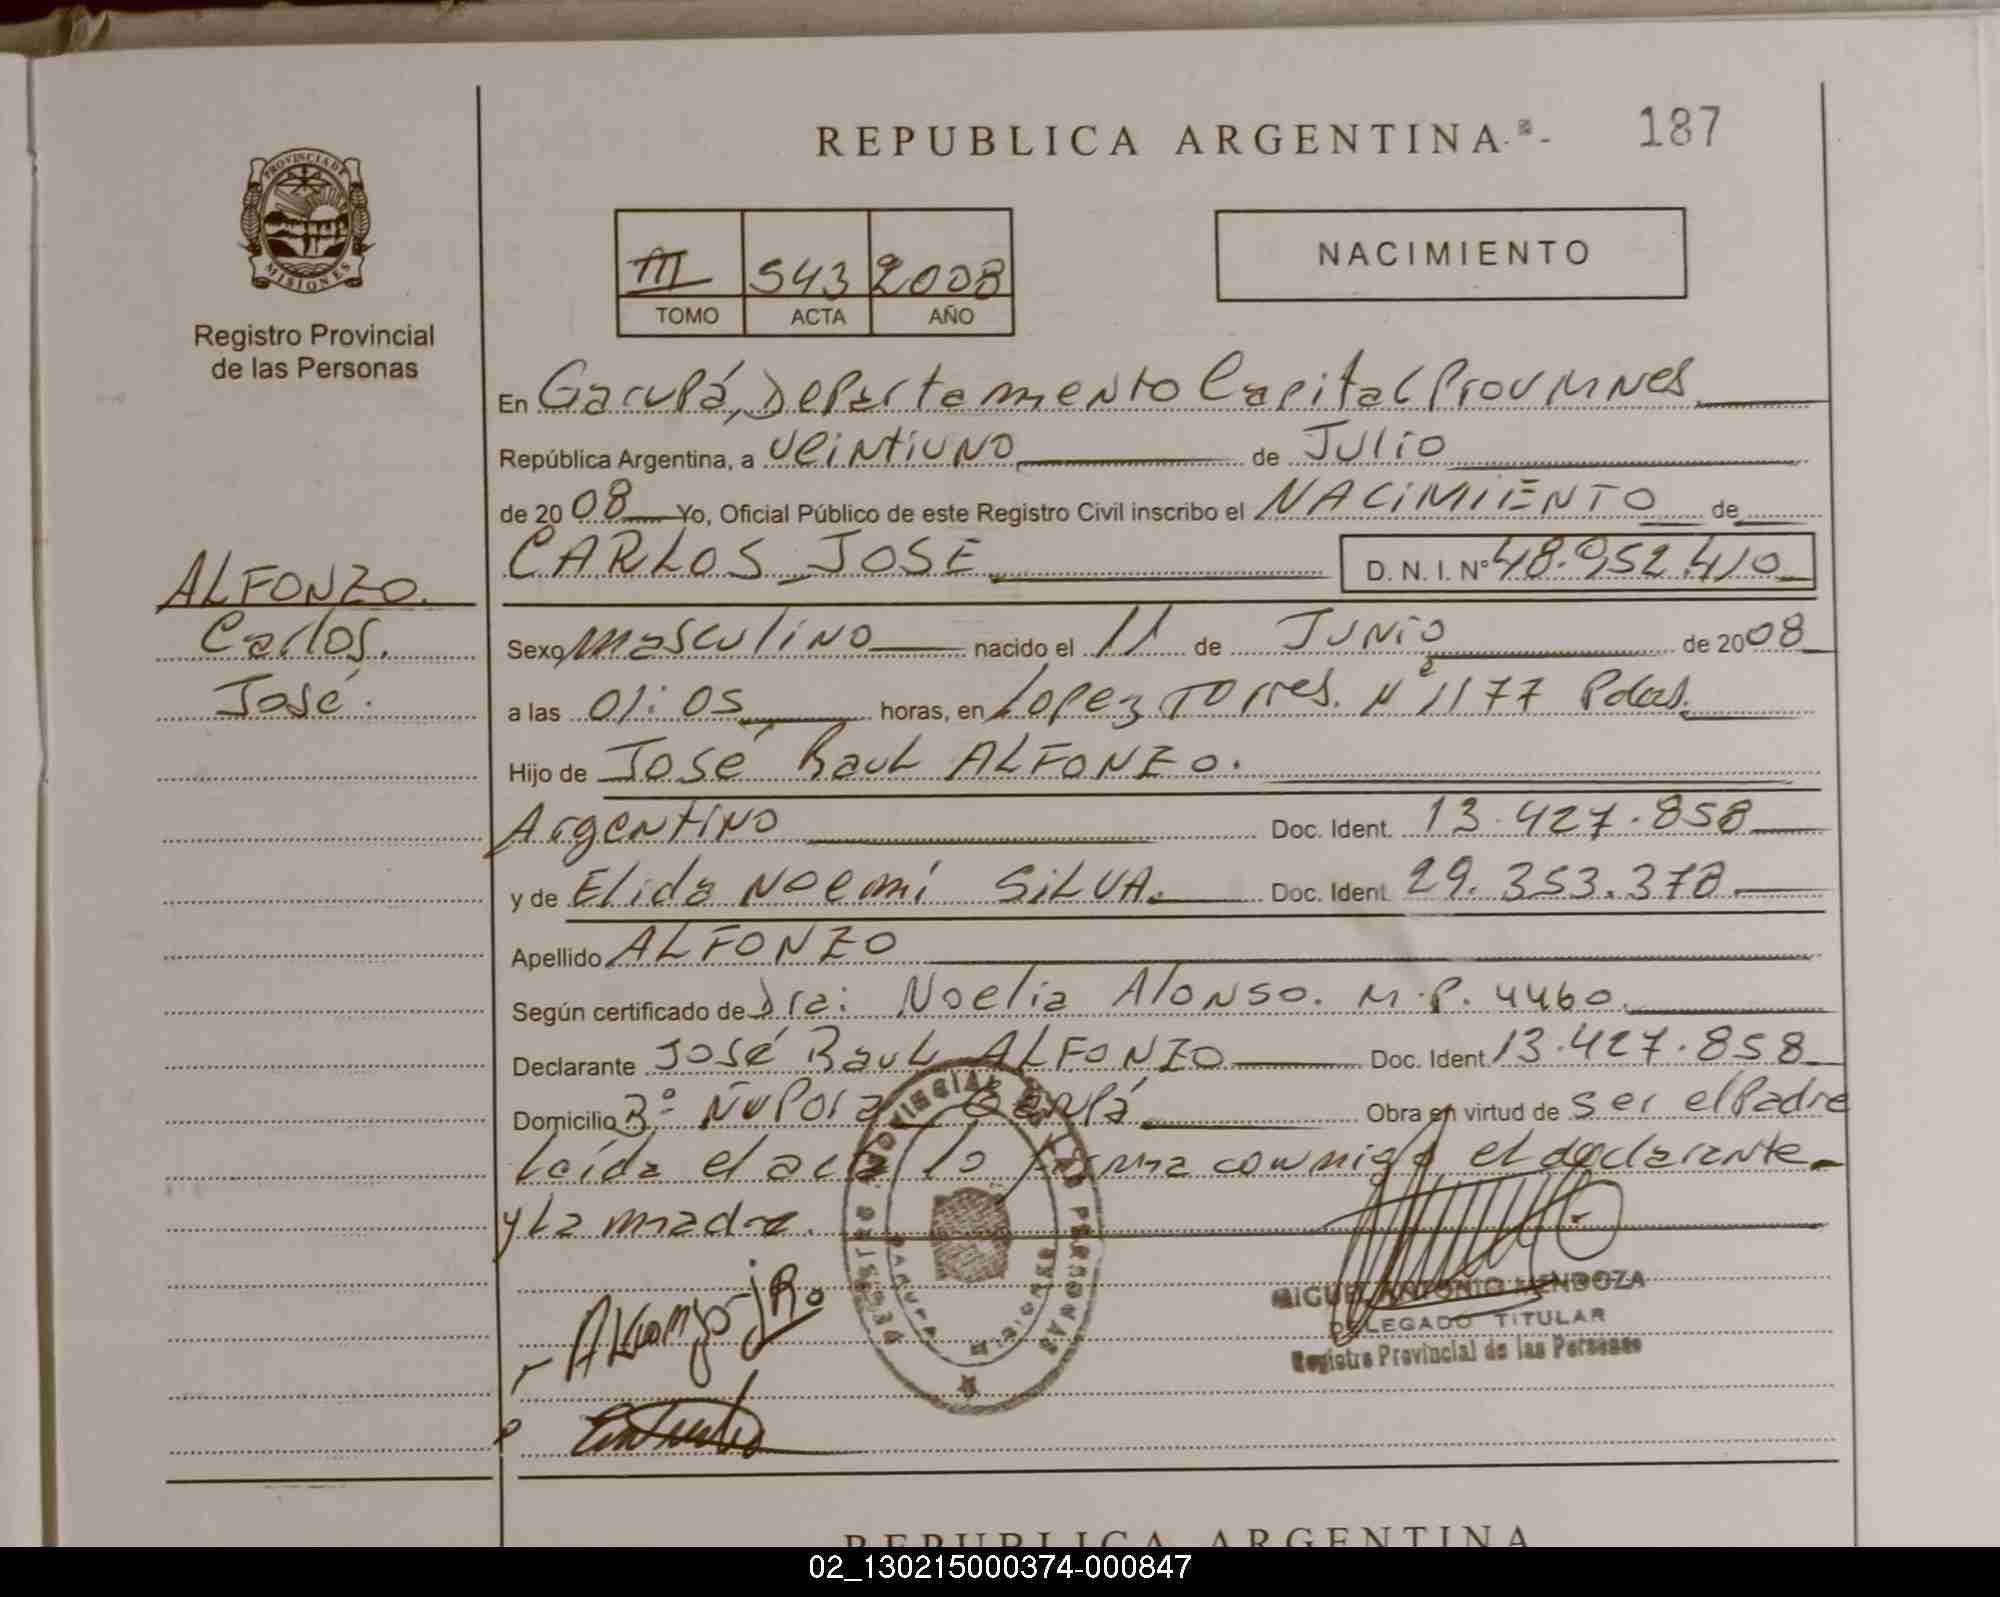 REPUBLICA ARGENTINA
187
PROVINCIA DE
MISIONES
Registro Provincial
de las Personas
III 543 2008
TOMO ACTA AÑO
NACIMIENTO
En Garupá, Departamento Capital Prov Mnes
República Argentina, a Veintiuno de Julio
de 2008 Yo, Oficial Público de este Registro Civil inscribo el NACIMIENTO de
CARLOS JOSE D. N. I. N° 48.952.410
ALFONZO.
Carlos.
José.
Sexo masculino nacido el 11 de Junio de 2008
a las 01:05 horas, en Lopez Torres. N° 1177 Pdas.
Hijo de José Raul ALFONZO.
Argentino Doc. Ident. 13.427.858
y de Elida Noemí SILVA. Doc. Ident. 29.353.378
Apellido ALFONZO
Según certificado de Dra: Noelia Alonso. M.P. 4460.
Declarante José Raul ALFONZO Doc. Ident. 13.427.858
Domicilio B° Ñu Pora Garupá Obra en virtud de ser el Padre
Leída el acta lo firma conmigo el declarante
y La madre.
MIGUEL ANTONIO MENDOZA
DELEGADO TITULAR
Registro Provincial de las Personas
REGISTRO PROVINCIAL DE LAS PERSONAS
GARUPA MISIONES
REPUBLICA ARGENTINA
02_130215000374-000847